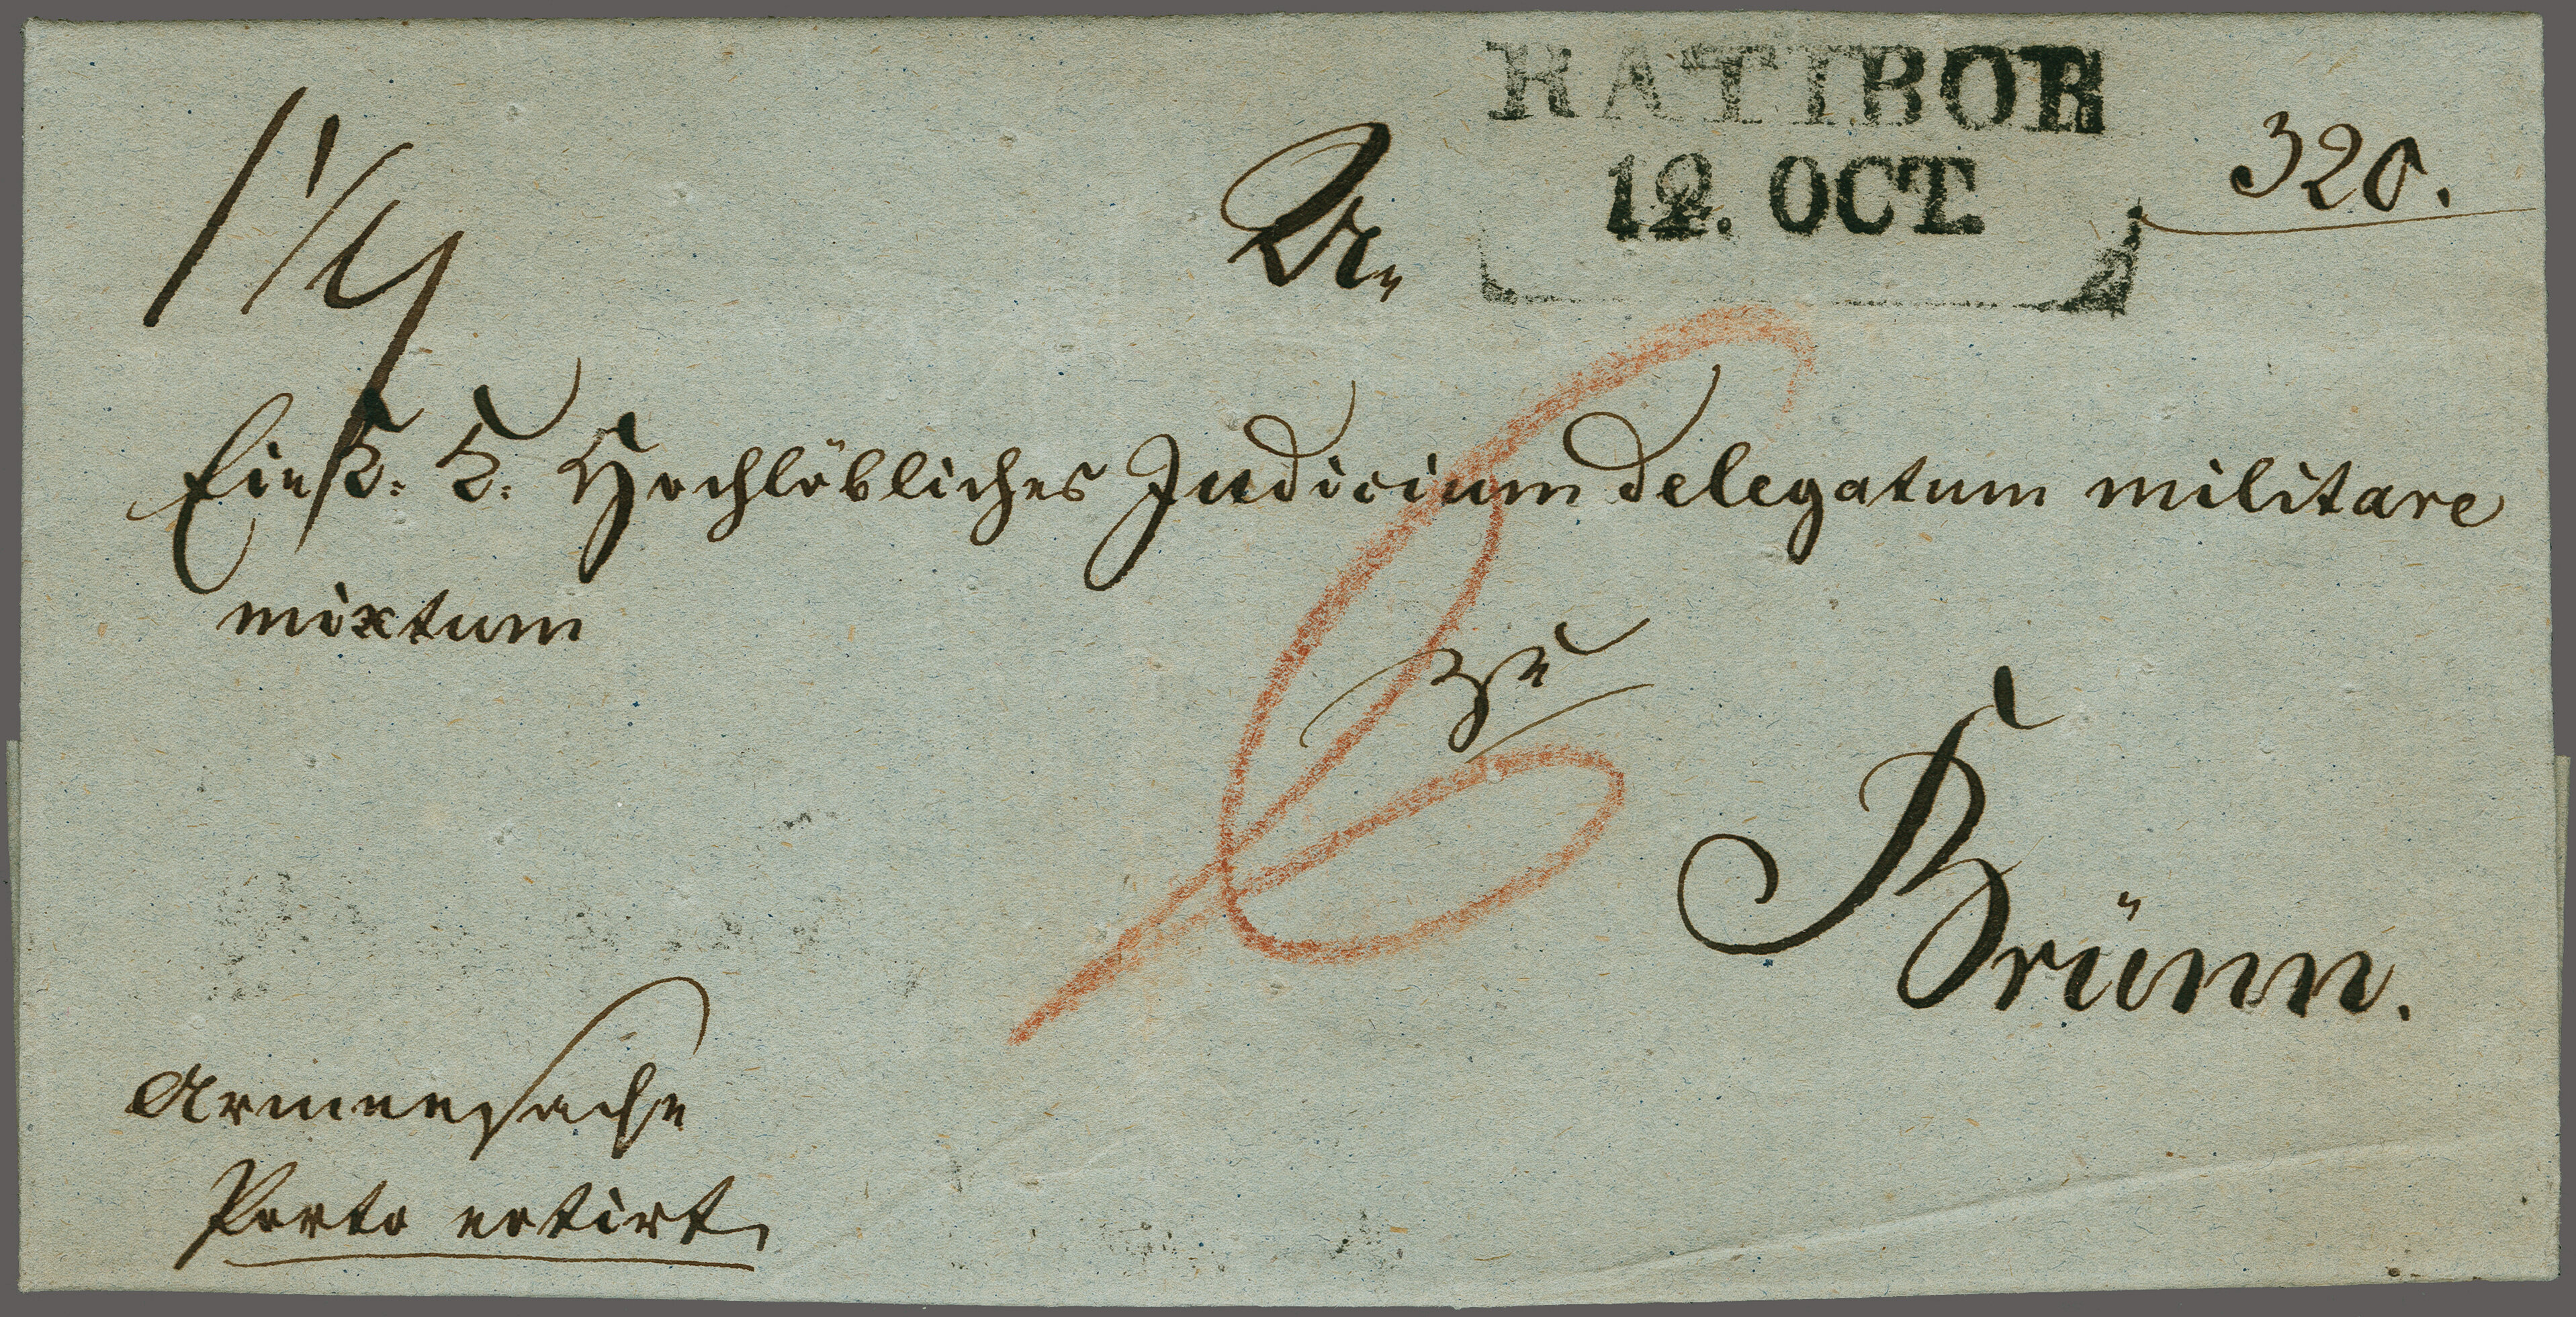 RATIBOR
12. OCT.
320.
1 1/4
An
Ein K: K: Hochlöbliches Judicium delegatum militare
mixtum
zu
Brünn.
Armensache
Porto notirt